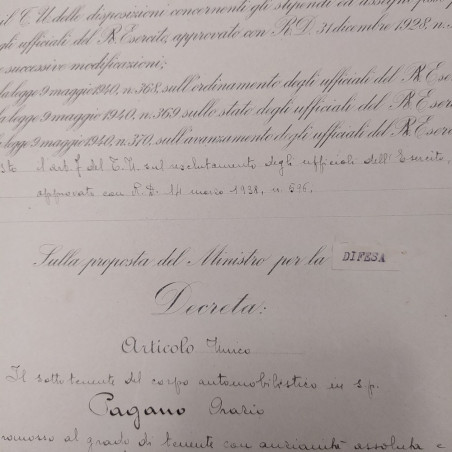 il T. U. delle disposizioni concernenti gli stipendi ed assegni fissi
gli ufficiali del R. Esercito, approvato con R.D. 31 dicembre 1928, n.
e successive modificazioni;
la legge 9 maggio 1940, n. 368, sull'ordinamento degli ufficiali del R. Ese
la legge 9 maggio 1940, n. 369 sullo stato degli ufficiali del R. Eser
legge 9 maggio 1940, n. 370, sull'avanzamento degli ufficiali del R. Eserc
l'art. 7 del T.U. sul reclutamento degli ufficiali dell'Esercito,
approvato con R.D. 14 marzo 1938, n. 596.
Sulla proposta del Ministro per la DIFESA
Decreta:
Articolo Unico
Il sottotenente del corpo automobilistico in s.p.
Pagano Orazio
romosso al grado di tenente con anzianità assoluta e